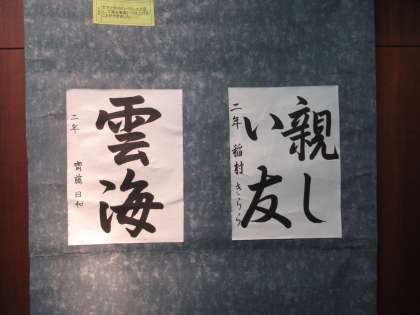 親し
い友
二年 稲村 きらら
雲海
二年 齊藤 日和